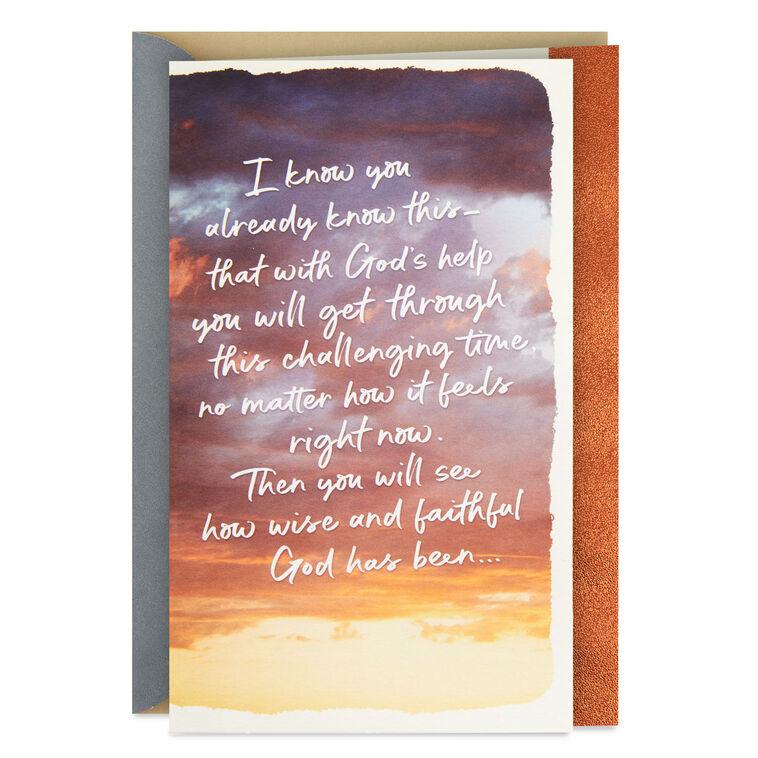 I know you
already know this–
that with God's help
you will get through
this challenging time,
no matter how it feels
right now.
Then you will see
how wise and faithful
God has been...